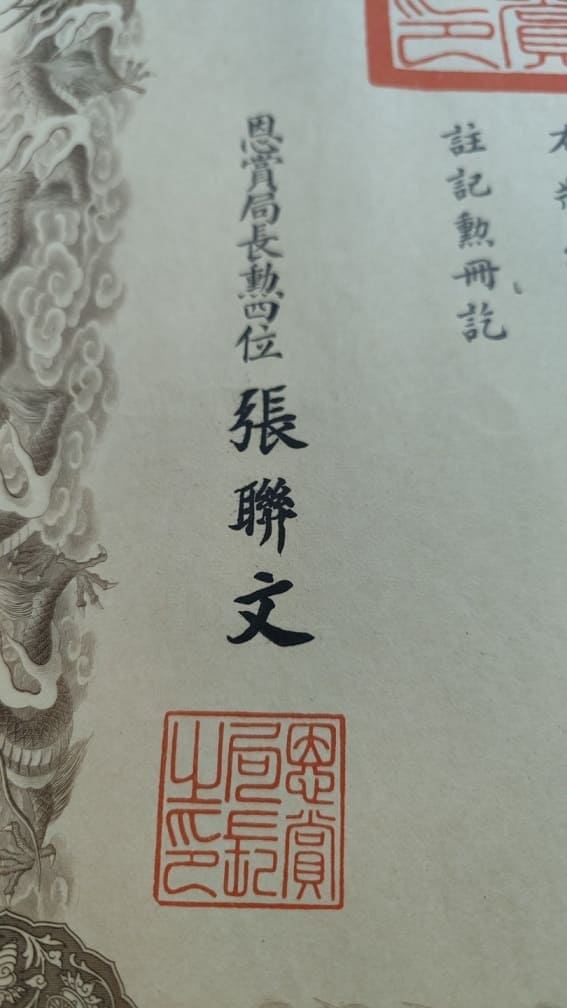 註記勲冊訖
恩賞局長勲四位張聯文
恩賞
局長
之印